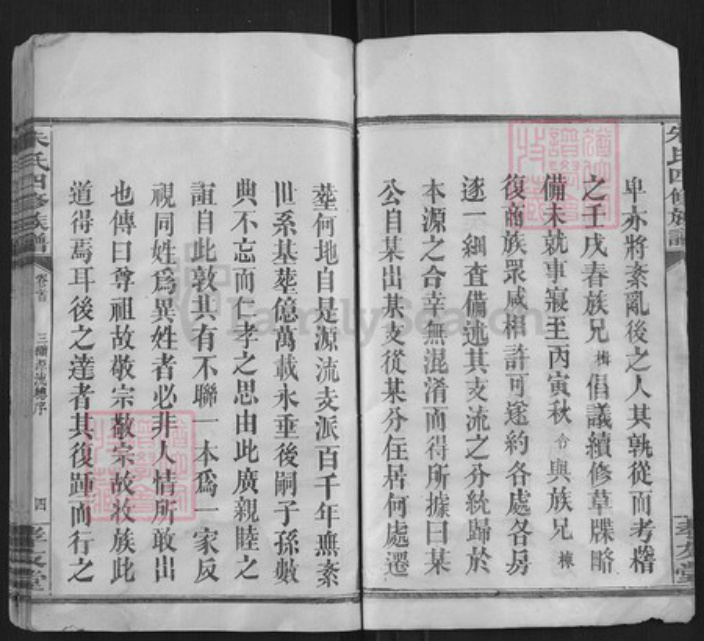 卑亦將紊亂後之人其孰從而考稽
之壬戌春族兄梅倡議續修草牒略
備未就事寢至丙寅秋合與族兄棟
復商族眾咸相許可遂約各處各房
逐一細查備述其支流之分統歸於
本源之合幸無混淆而得所據曰某
公自某出某支從某分住居何處遷
塟何地自是源流支派百千年無紊
世系基塟億萬載永垂後嗣子孫數
典不忘而仁孝之思由此廣親睦之
誼自此敦其有不聯一本為一家反
視同姓為異姓者必非人情所敢出
也傳曰尊祖故敬宗敬宗故收族此
道得焉耳後之達者其復踵而行之
朱氏四修族譜
卷首
四
孝友堂
朱氏四修族譜
孝友堂
FamilySearch